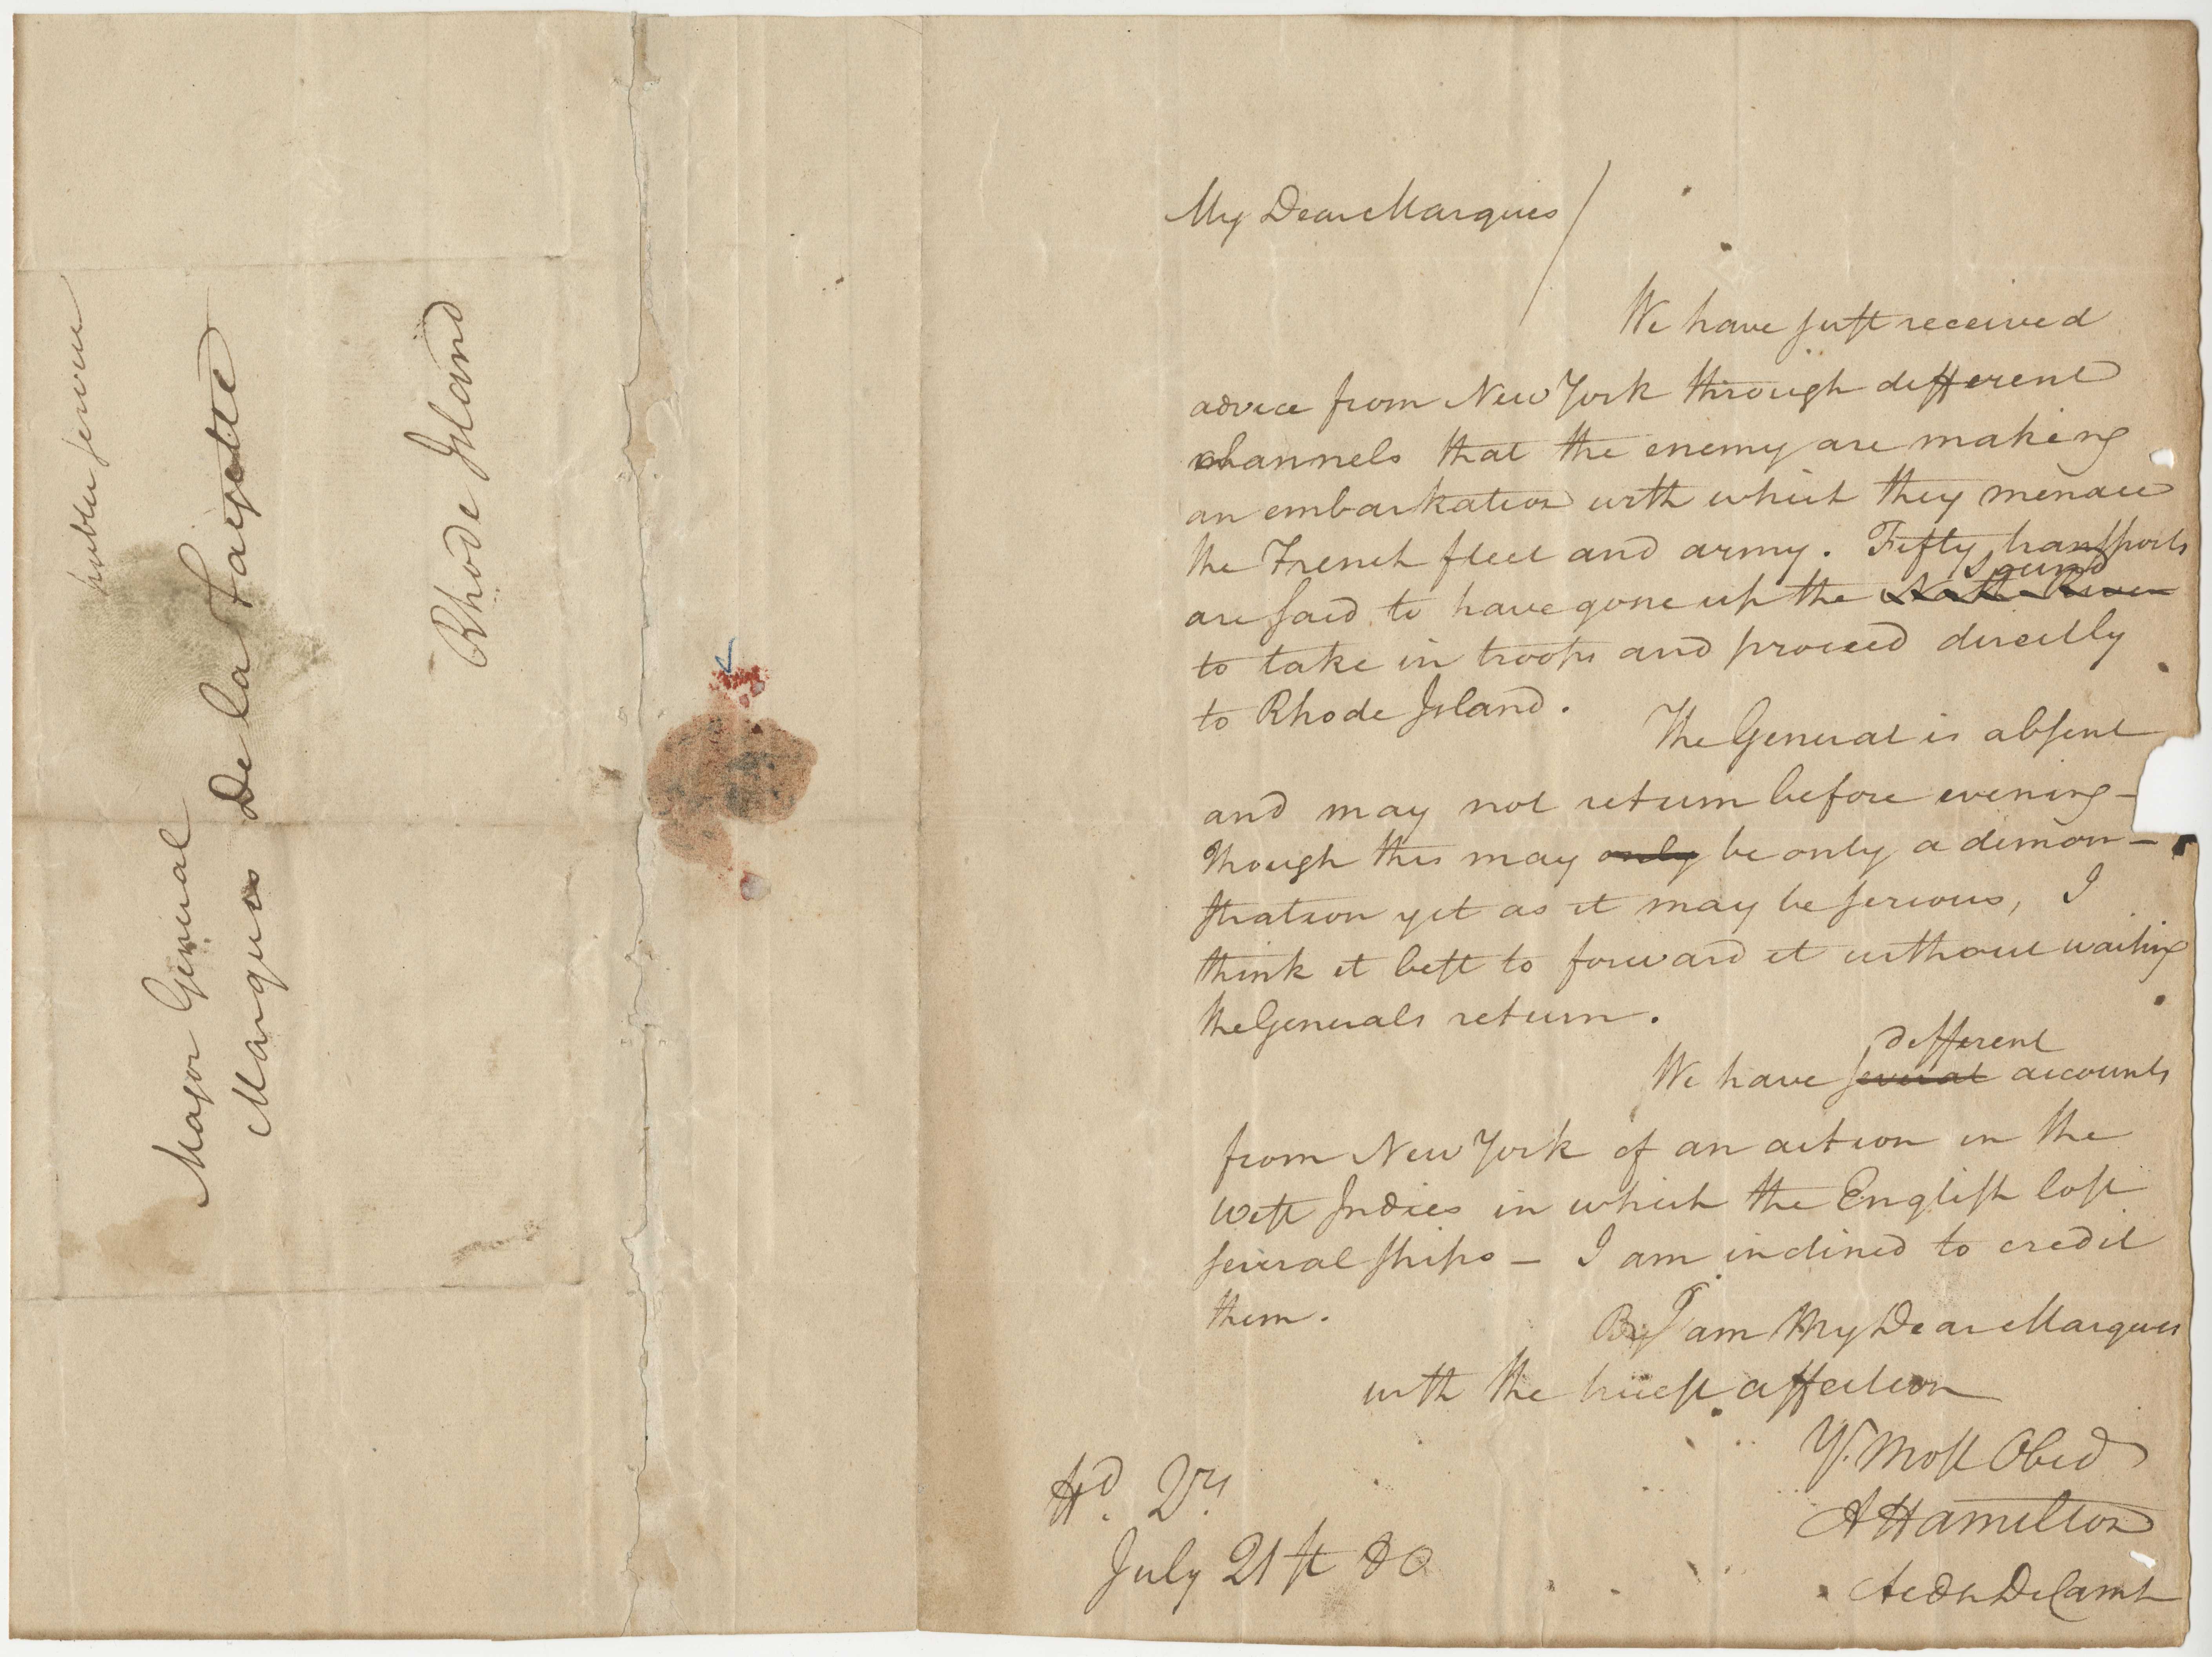 public service
Major General
Marquis De la Fayette
Rhode Island
My Dear Marquis
We have just received
advice from New York through different
channels that the enemy are making
an embarkation with which they menace
the French fleet and army. Fifty transports
sound
are said to have gone up the North River
to take in troops and proceed directly
to Rhode Island.
The General is absent
and may not return before evening –
Though this may only be only a demon–
stration yet as it may be serious, I
think it best to forward it without waiting
the Generals return.
different
We have several accounts
from New York of an action in the
West Indies in which the English lost
several ships – I am inclined to credit
them.
I am My Dear Marquis
with the truest affection
Yr. Most Obed
A Hamilton
Aide De Camp
Hd. Qrs.
July 21st 80